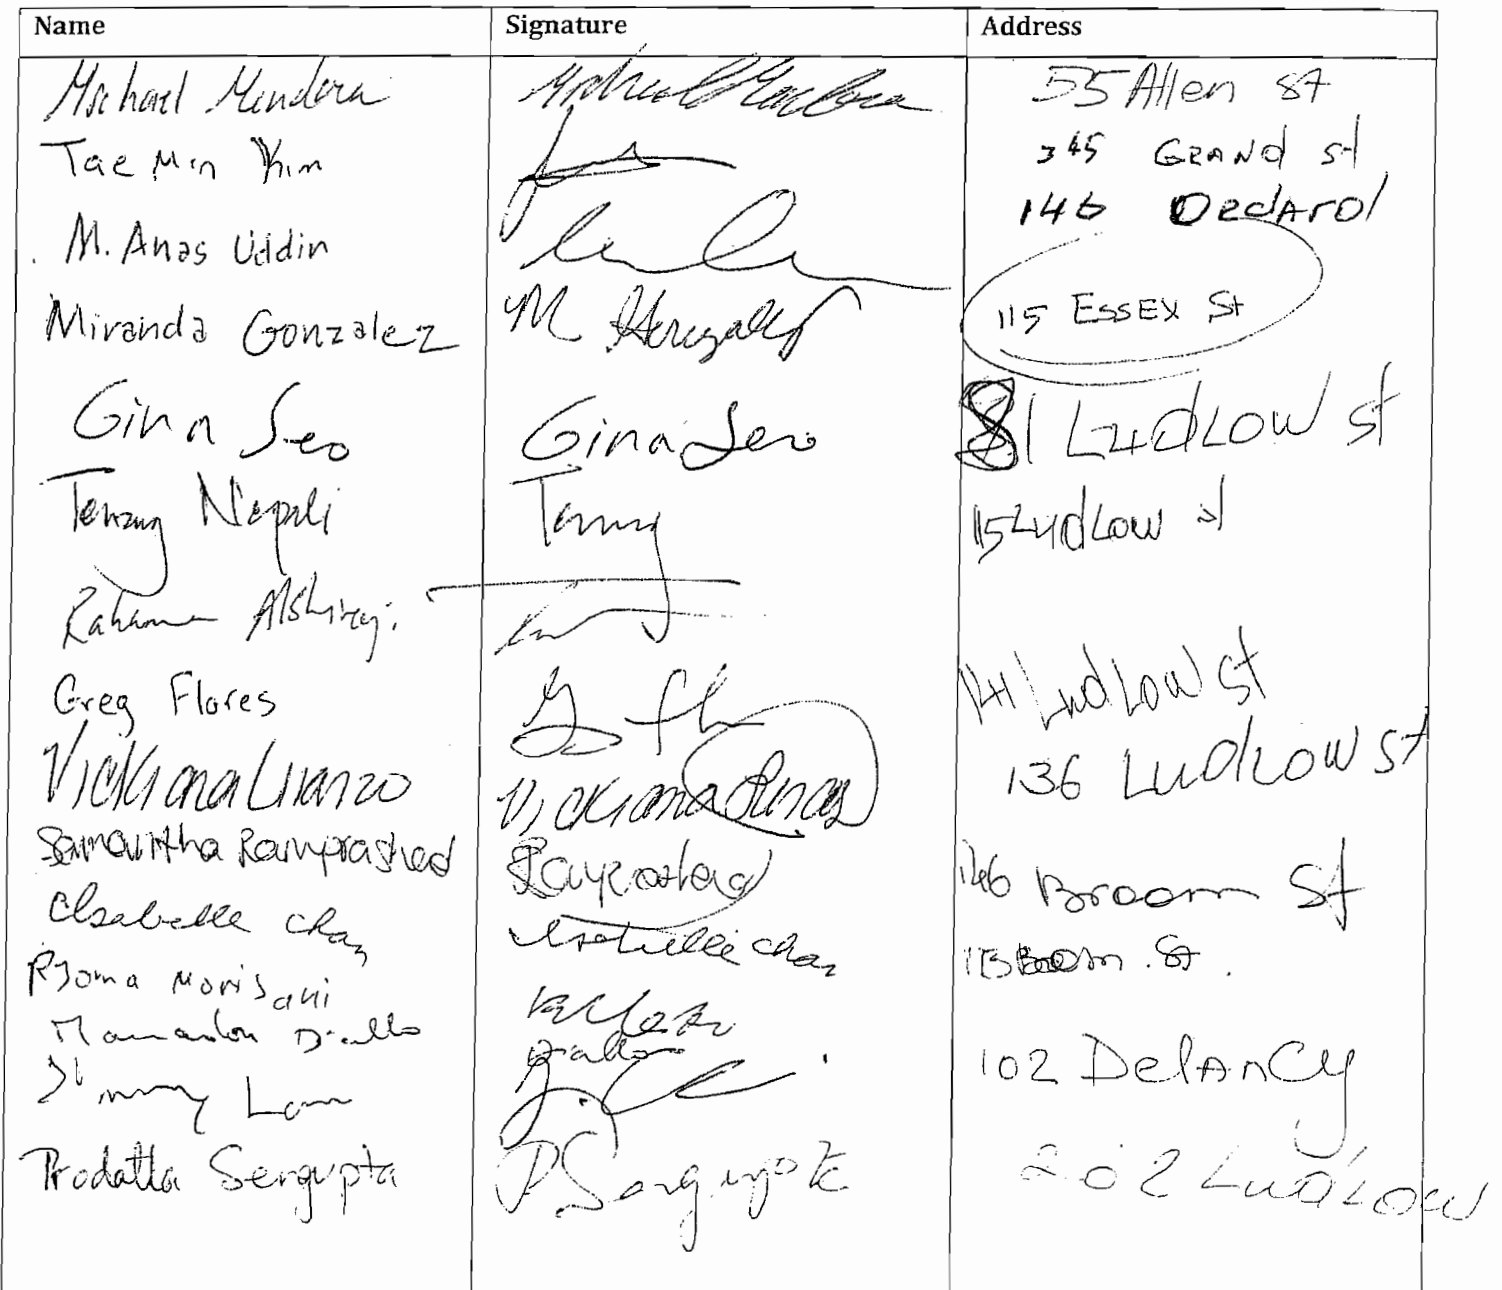 Name Signature Address
Michael Mendoza 55 Allen St
Tae Min Kim 345 GRANd st
M. Anas Uddin 146 OrchArd
Miranda Gonzalez M Gonzalez 115 ESSEX St
Gina Seo Gina Seo 81 LudLow st
Tenzing Nepali Tenzing 115 LudLow st
Alshiraji
Greg Flores 141 LudLow St
Vickiana Lianzo Vickiana 136 LudLow st
Samantha Ramprashad 146 Broom St
Isabelle Chan Isabelle Chan Broom St.
Ryoma Morisani
Mamadou Diallo Diallo 102 DelAnCy
Jimmy Lam
Prodatta Sengupta P Sengupta 202 LudLow